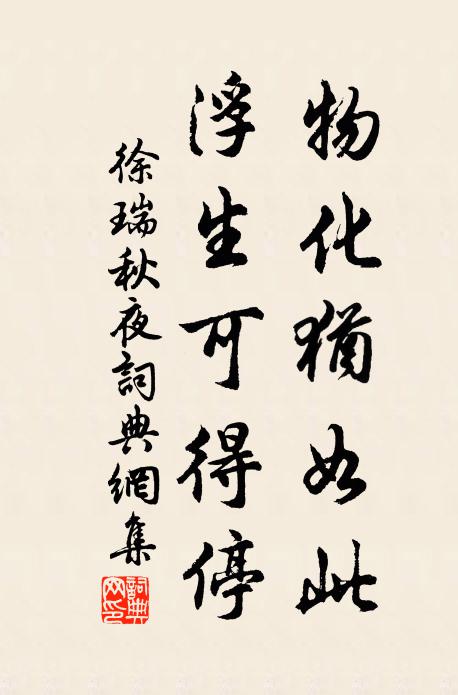 物化猶如此
浮生可得停
徐瑞秋夜詞典網集
詞典網印